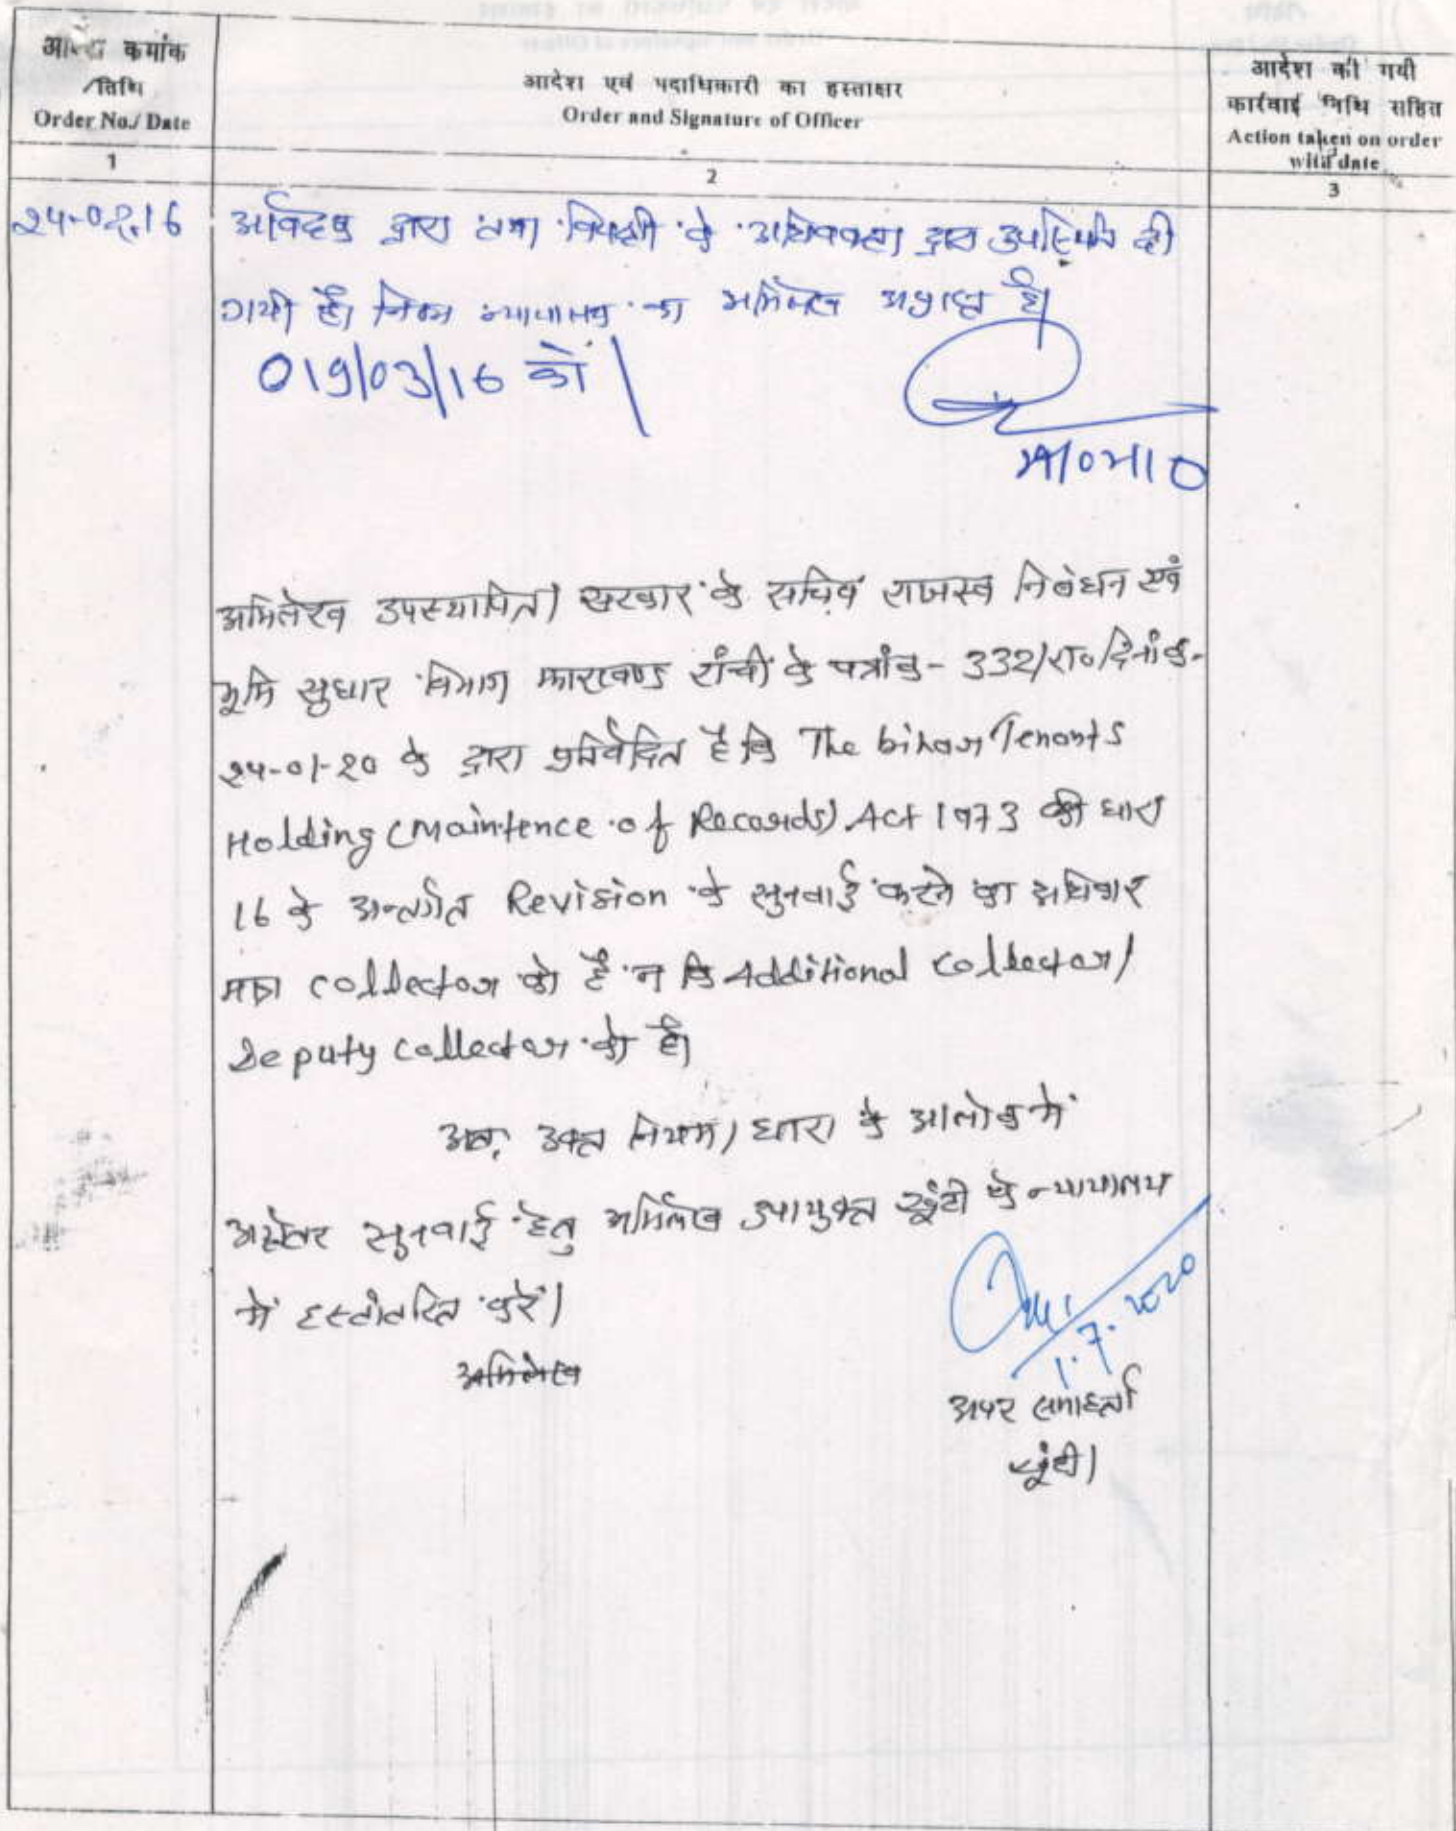 आदेश कमांक
/तिथि
Order No./ Date
आदेश एवं पदाधिकारी का हस्ताक्षर
Order and Signature of Officer
आदेश की गयी
कार्रवाई तिथि सहित
Action taken on order
with date
1
2
3
24-02-16
आवेदक द्वारा तथा विपक्षी के अधिवक्ता द्वारा उपस्थिति दी
गयी है। निम्न न्यायालय का अभिलेख अप्राप्त है।
019/03/16 को
अभिलेख उपस्थापित। सरकार के सचिव राजस्व निबंधन एवं
भूमि सुधार विभाग झारखण्ड राँची के पत्रांक- 332/रा० दिनांक-
24-01-20 के द्वारा प्रतिवेदित है कि The bihar Tenants
Holding (Maintence of Records) Act 1973 की धारा
16 के अन्तर्गत Revision के सुनवाई करने का अधिकार
collector को है न कि Additional Collector/
Deputy Collector को है।
अतः उक्त नियम/धारा के आलोक में
सुनवाई हेतु अभिलेख उपायुक्त खूँटी के न्यायालय
में हस्तांतरित करें।
अभिलेख
1.7.2020
अपर समाहर्ता
खूंटी।